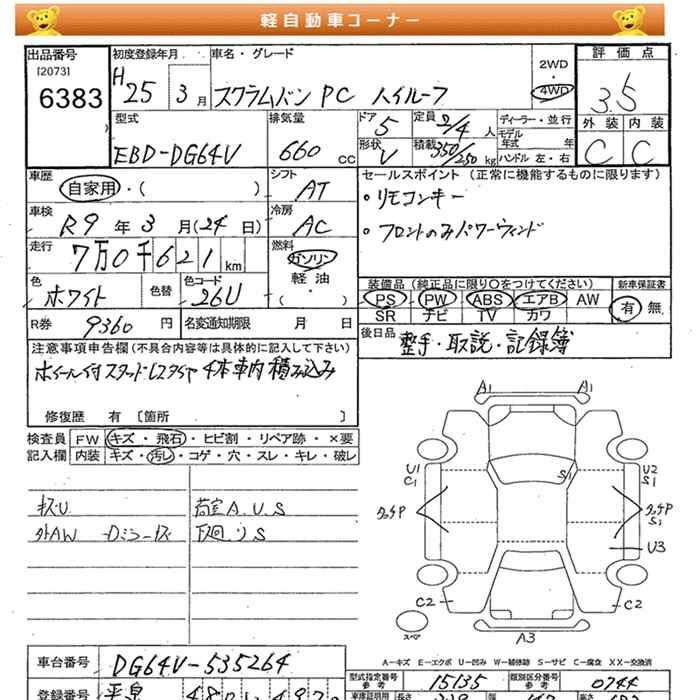 軽自動車コーナー
出品番号 初度登録年月 車名・グレード 2WD 評価点
[2073] 6383 H25 3月 スクラムバン PC ハイルーフ ・ 4WD 3.5
型式 排気量 ドア 5 定員 2/4 人 ディーラー・並行 外装 内装
EBD-DG64V 660 cc 形状 V 積載 350/250 kg モデル年式 年 C C
ハンドル 左・右
車歴 シフト セールスポイント (正常に機能するものに限ります)
自家用・( ) AT ・リモコンキー
車検 R9年3月(24日) 冷房 AC ・フロントのみパワーウィンド
走行 7万0千621km 燃料 ガソリン 軽油 ・( )
装備品(純正品に限り○をつけてください) 新車保証書
色 ホワイト 色替 色コード 26U PS PW ABS エアB AW 有 無
SR ナビ TV カワ
R券 9360円 名変通知期限 月 日 後日品 整手・取説・記録簿
注意事項申告欄(不具合内容等は具体的に記入して下さい)
ホイール付スタッドレスタイヤ 4本車内積み込み
修復歴 有 [箇所 ]
検査員 FW キズ・飛石・ヒビ割・リペア跡・×要
記入欄 内装 キズ・汚レ・コゲ・穴・スレ・キレ・破レ
キズU 荷室A.U.S
外AW 下廻りS
A1 A1
S1
U1 C1 U2 S1
タッチP タッチP S1
U3
C2 C2
スペア A3
A―キズ E―エクボ U―凹み W―補修跡 S―サビ C―腐食 XX―交換済
車台番号 DG64V-535264
型式指定番号 参考 15135 類別区分番号 参考 0744
登録番号 平泉 車車証明用 長さ